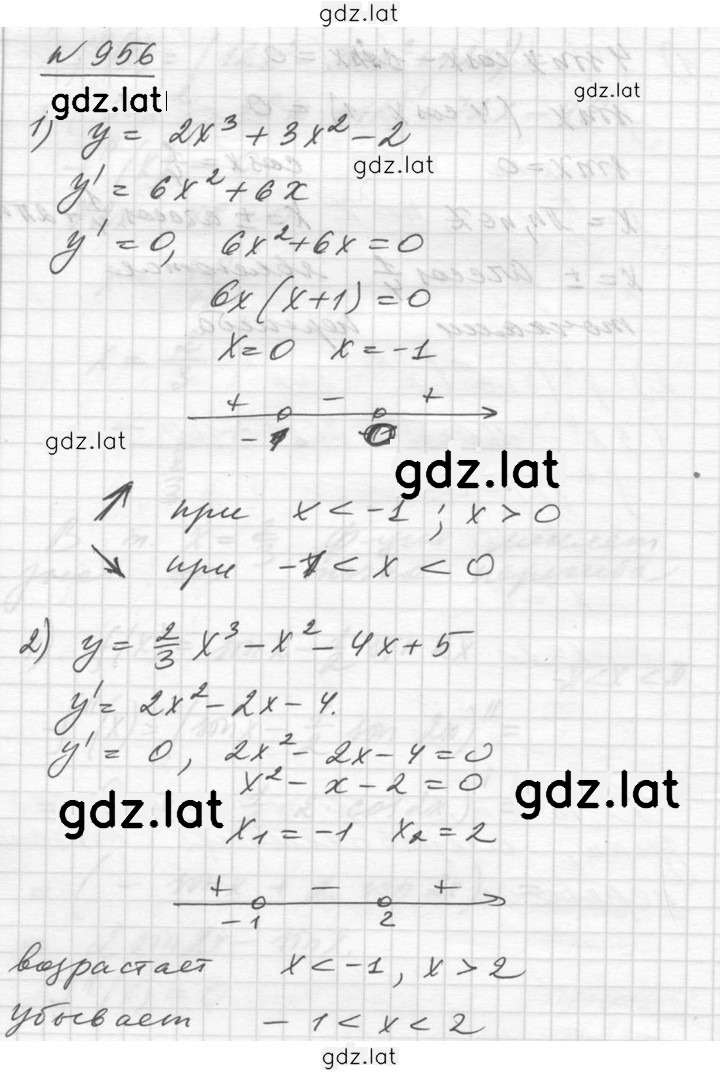 gdz.lat
N 956
gdz.lat
gdz.lat
1) y = 2x³ + 3x² - 2
gdz.lat
y' = 6x² + 6x
y' = 0, 6x² + 6x = 0
6x(x+1) = 0
x = 0 x = -1
+ - +
-1 0
gdz.lat
gdz.lat
↗ при x < -1 ; x > 0
↘ при -1 < x < 0
2) y = 2/3 x³ - x² - 4x + 5
y' = 2x² - 2x - 4.
y' = 0, 2x² - 2x - 4 = 0
x² - x - 2 = 0
gdz.lat
gdz.lat
x₁ = -1 x₂ = 2
+ - +
-1 2
возрастает x < -1, x > 2
убывает -1 < x < 2
gdz.lat